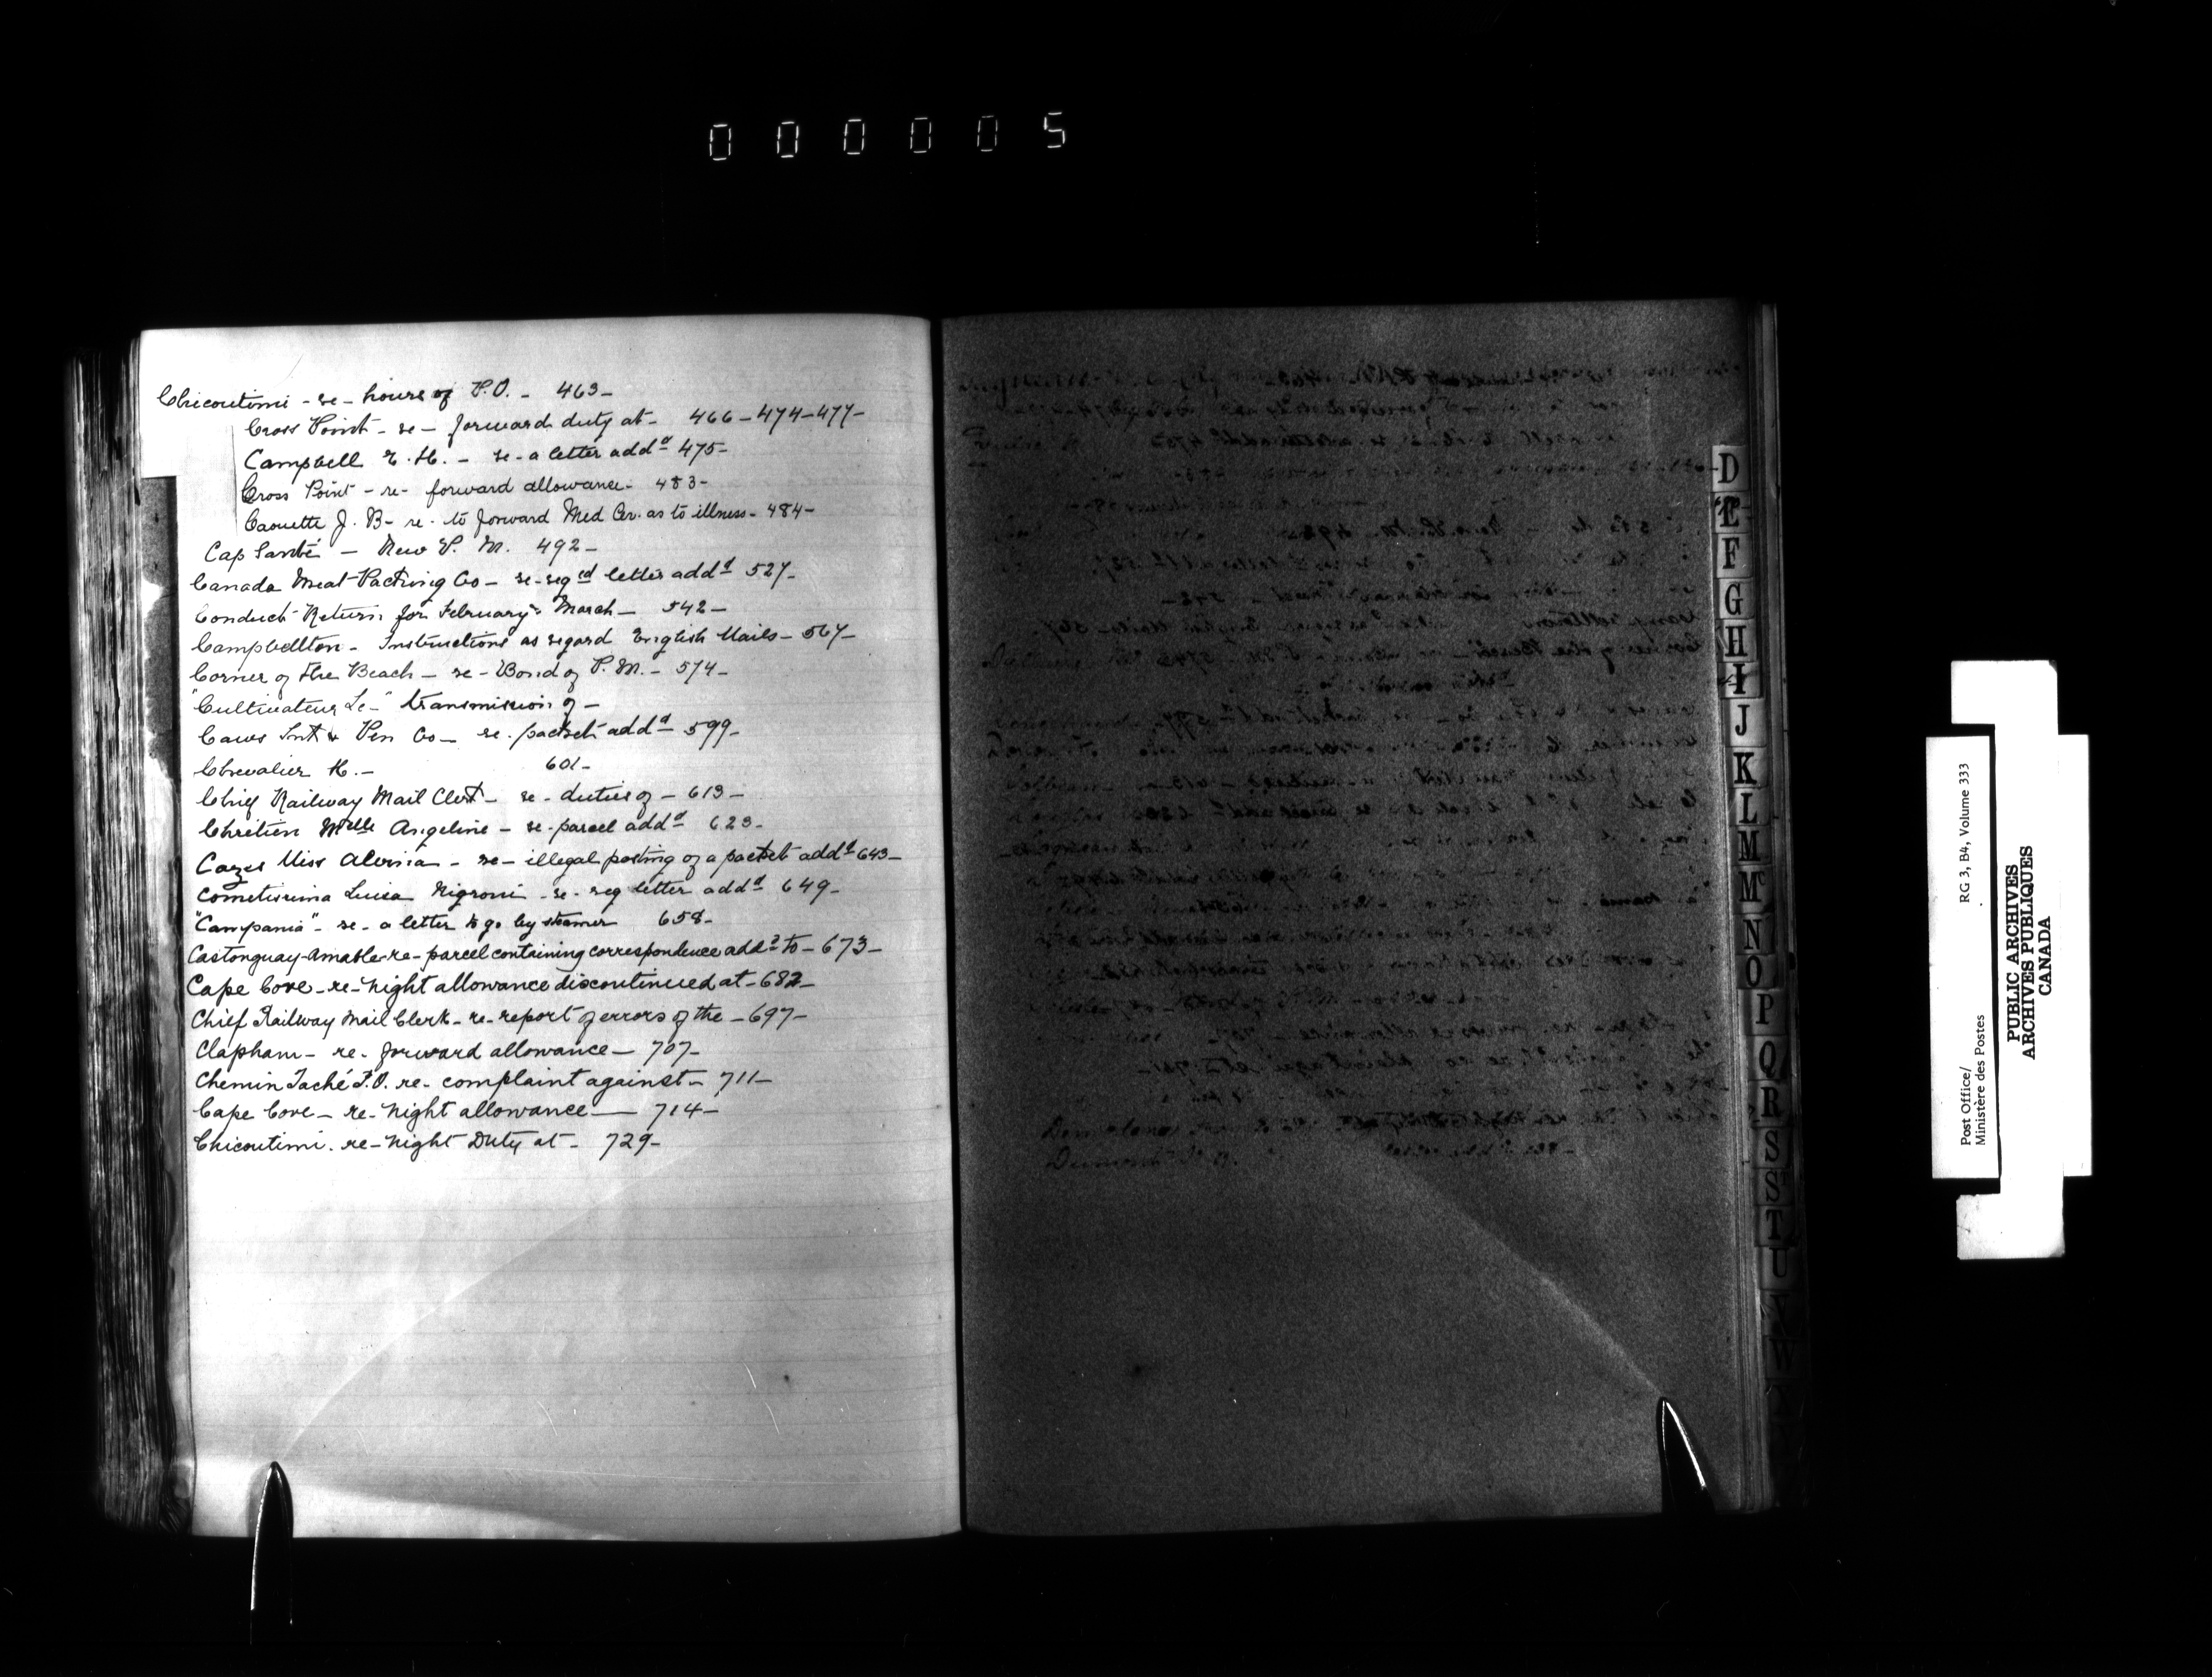 000005
Chicoutimi - re - hours of P.O. - 463 -
Cross Point - re - forward duty at - 466 - 474 - 477 -
Campbell E. H. - re - a letter addd 475 -
Cross Point - re - forward allowance - 483 -
Caouette J. B - re - to forward Med Cer. as to illness - 484 -
Cap Santé - New P. M. 492 -
Canada Meat Packing Co - re - reged letter addd 527 -
Conduct Return for February & March - 542 -
Campbellton - Instructions as regard English Mails - 567 -
Corner of the Beach - re - Bond of P. M. - 574 -
"Cultivateur Le -" transmission of -
Caws Ink & Pen Co - re - packet addd 599 -
Chevalier H. - 601 -
Chief Railway Mail Clerk - re - duties of - 613 -
Chrétien Melle Angeline - re - parcel addd 623 -
Cazes Miss Alvina - re - illegal posting of a packet addd 643 -
Cometissima Luisa Nigroni - re - reg letter addd 649 -
"Campania" - re - a letter to go by steamer 658 -
Castonguay Amable - re - parcel containing correspondence addd to - 673 -
Cape Cove - re - night allowance discontinued at - 682 -
Chief Railway Mail Clerk - re - report of errors of the - 697 -
Clapham - re - forward allowance - 707 -
Chemin Taché P.O. re - complaint against - 711 -
Cape Cove - re - night allowance - 714 -
Chicoutimi. re - night Duty at - 729 -
D
E
F
G
H
I
J
K
L
M
Mc
N
O
P
Q
R
S
S
T
U
V
W
Post Office/
Ministère des Postes
RG 3, B4, Volume 333
PUBLIC ARCHIVES
ARCHIVES PUBLIQUES
CANADA